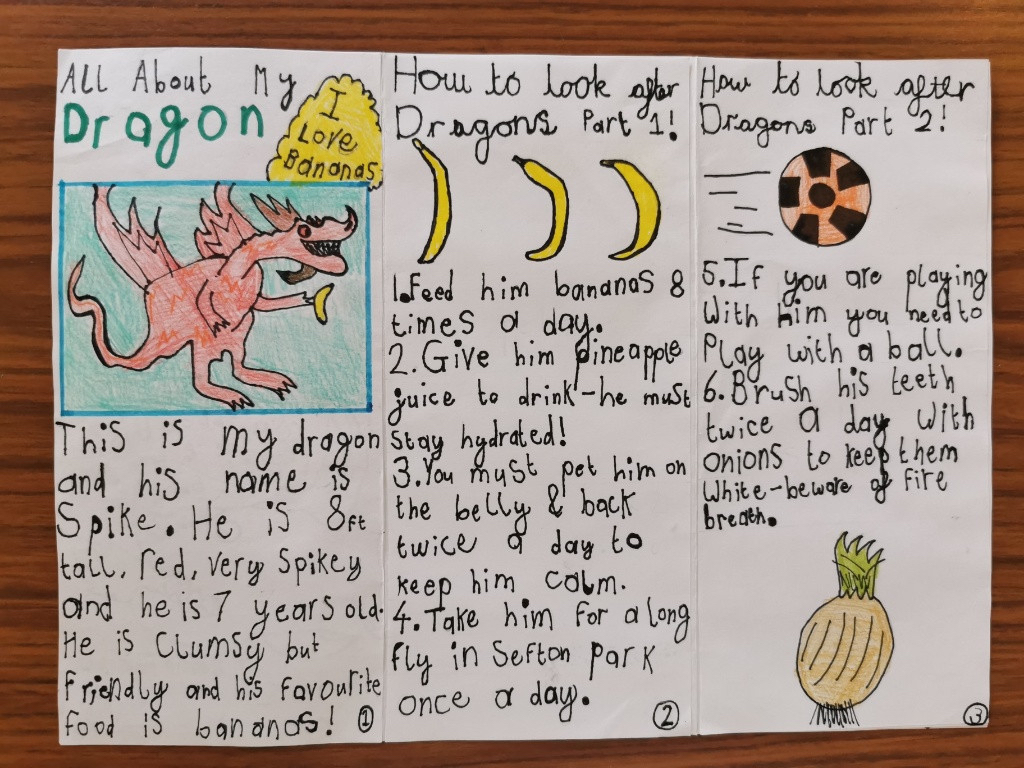 All About My
Dragon
I
Love
Bananas
This is my dragon
and his name is
Spike. He is 8ft
tall, red, very spikey
and he is 7 years old.
He is Clumsy but
friendly and his favourite
food is bananas!
1
How to look after
Dragons Part 1!
1. Feed him bananas 8
times a day.
2. Give him pineapple
juice to drink - he must
stay hydrated!
3. You must pet him on
the belly & back
twice a day to
keep him calm.
4. Take him for a long
fly in Sefton park
once a day.
2
How to look after
Dragons Part 2!
5. If you are playing
With him you need to
Play with a ball.
6. Brush his teeth
twice a day with
onions to keep them
White - beware of fire
breath.
3